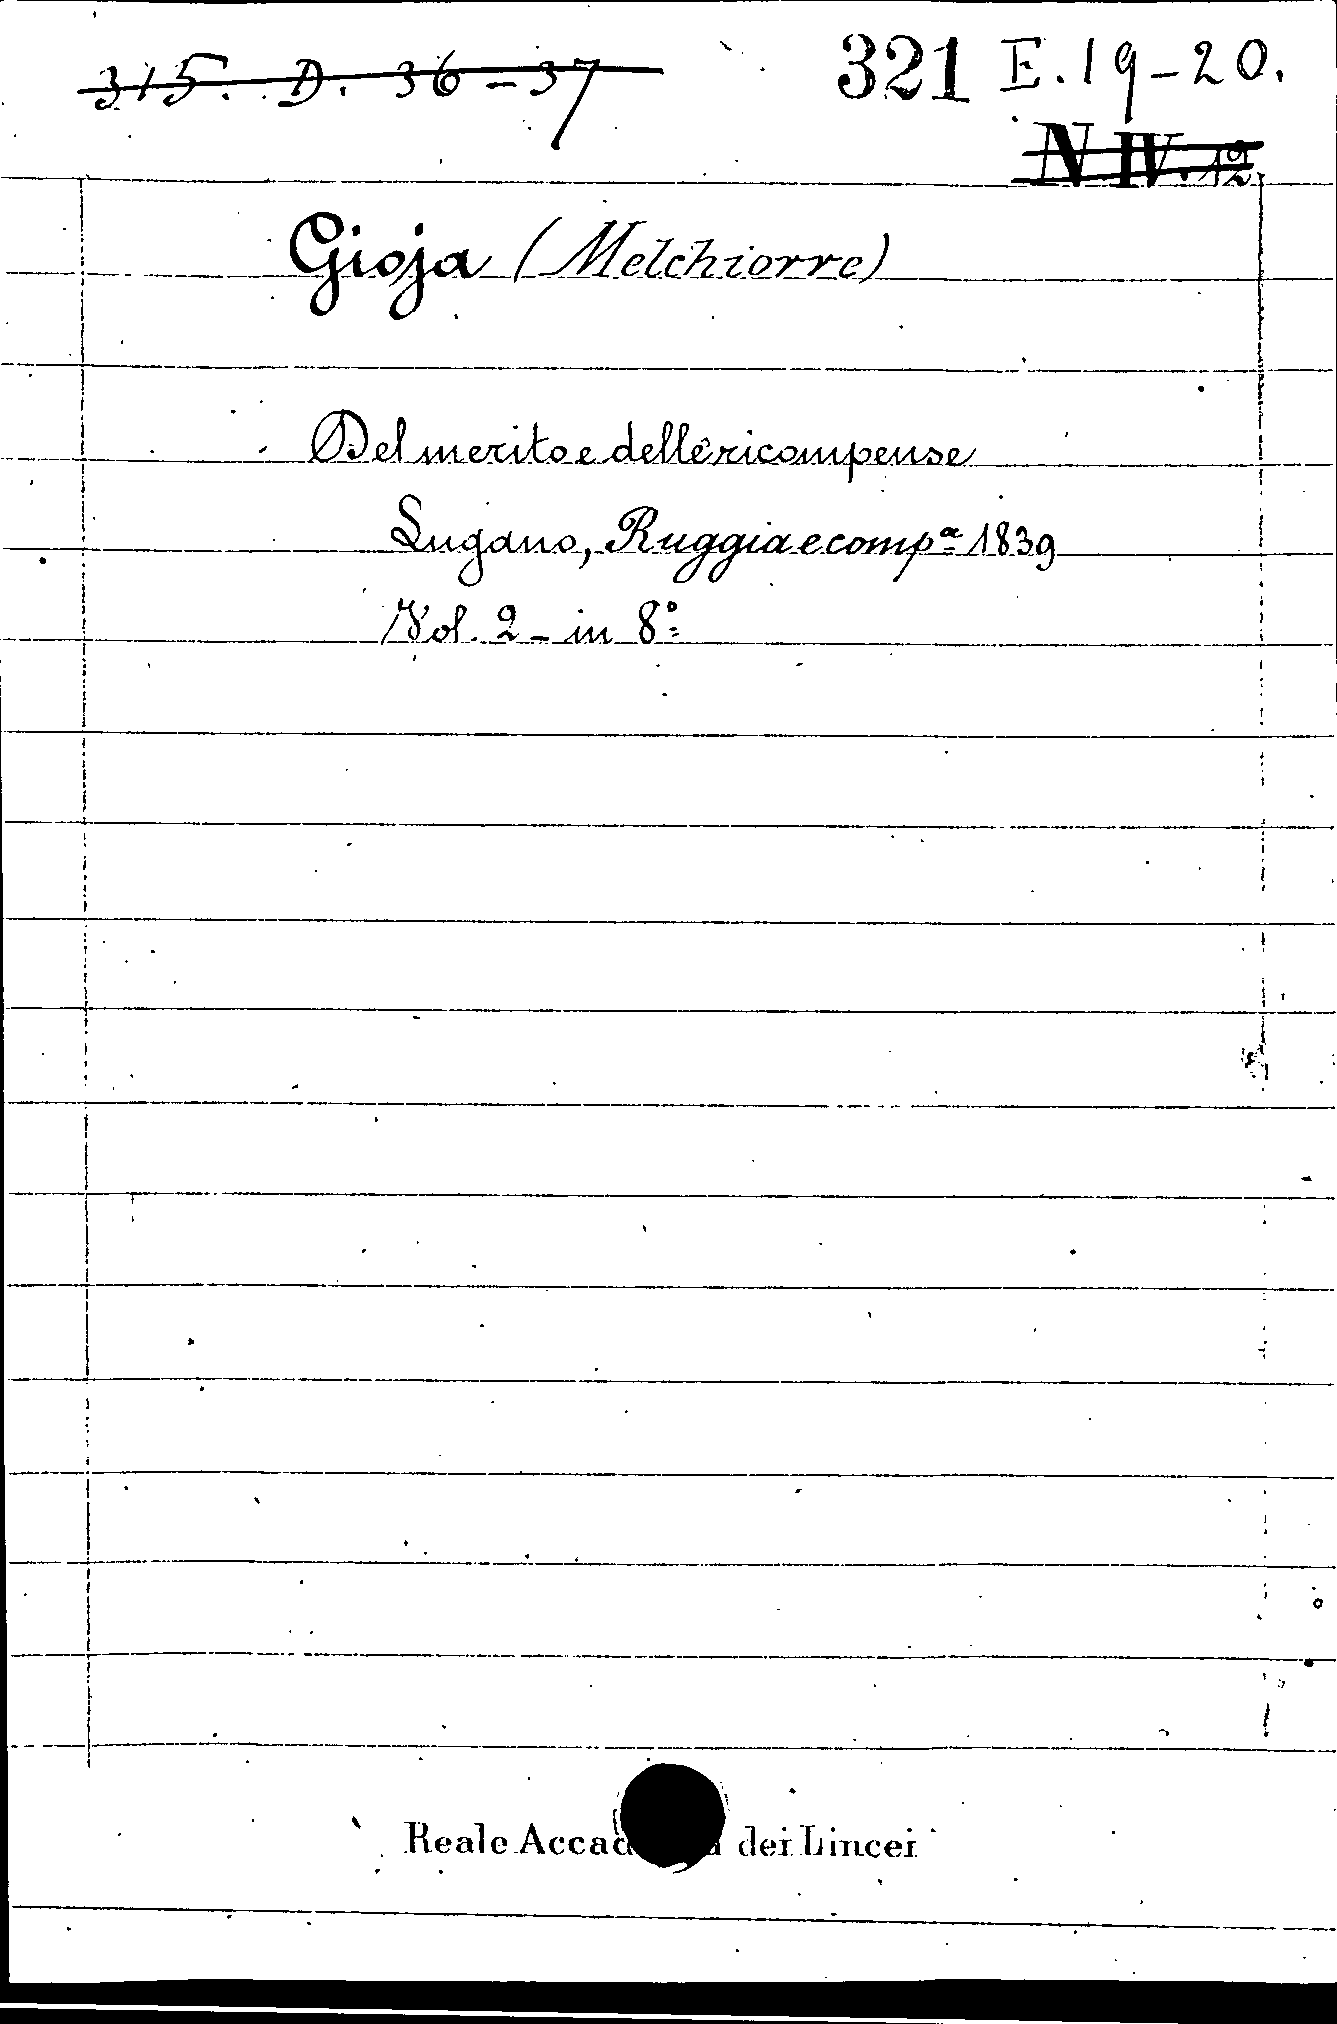 315. D. 36-37
321 E. 19-20.
N IV. 12
Gioja (Melchiorre)
Del merito e delle ricompense
Lugano, Ruggia e compª 1839
Vol. 2 - in 8°
Reale dei Lincei